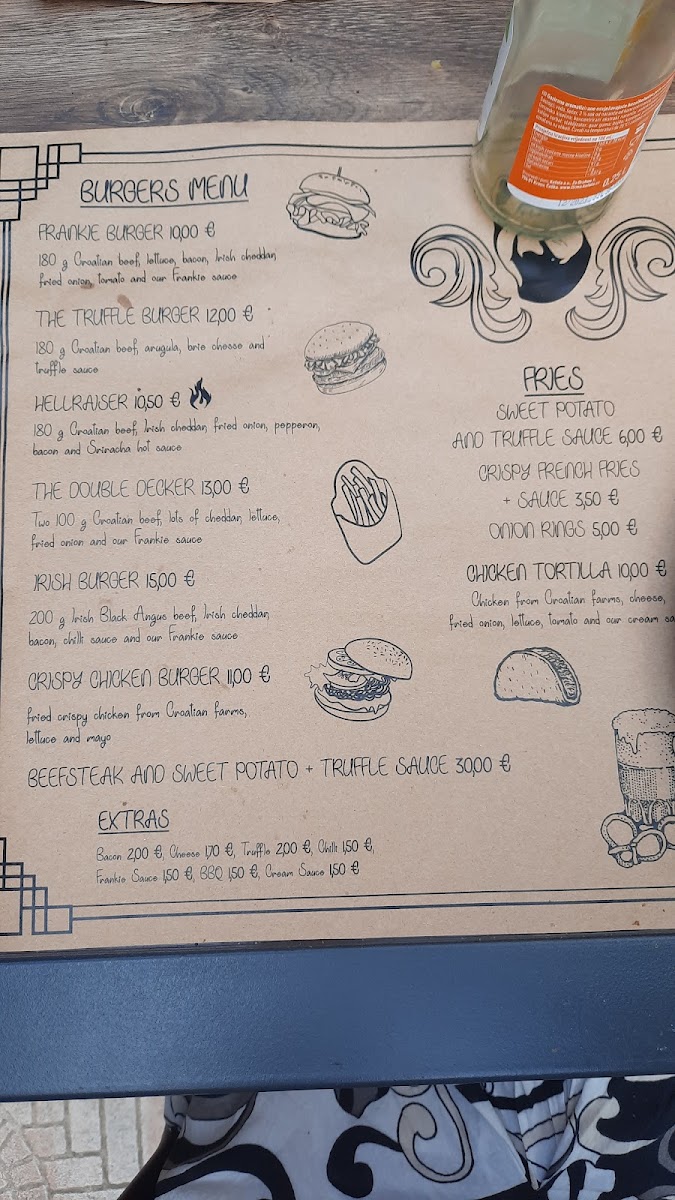 BURGERS MENU
FRANKIE BURGER 10,00 €
180 g Croatian beef, lettuce, bacon, Irish cheddar,
fried onion, tomato and our Frankie sauce
THE TRUFFLE BURGER 12,00 €
180 g Croatian beef, arugula, brie cheese and
truffle sauce
HELLRAISER 10,50 €
180 g Croatian beef, Irish cheddar, fried onion, pepperon,
bacon and Sriracha hot sauce
THE DOUBLE DECKER 13,00 €
Two 100 g Croatian beef, lots of cheddar, lettuce,
fried onion and our Frankie sauce
IRISH BURGER 15,00 €
200 g Irish Black Angus beef, Irish cheddar,
bacon, chilli sauce and our Frankie sauce
CRISPY CHICKEN BURGER 11,00 €
fried crispy chicken from Croatian farms,
lettuce and mayo
BEEFSTEAK AND SWEET POTATO + TRUFFLE SAUCE 30,00 €
EXTRAS
Bacon 2,00 €, Cheese 1,70 €, Truffle 2,00 €, Chilli 1,50 €,
Frankie Sauce 1,50 €, BBQ 1,50 €, Cream Sauce 1,50 €
FRIES
SWEET POTATO
AND TRUFFLE SAUCE 6,00 €
CRISPY FRENCH FRIES
+ SAUCE 3,50 €
ONION RINGS 5,00 €
CHICKEN TORTILLA 10,00 €
Chicken from Croatian farms, cheese,
fried onion, lettuce, tomato and our cream sa